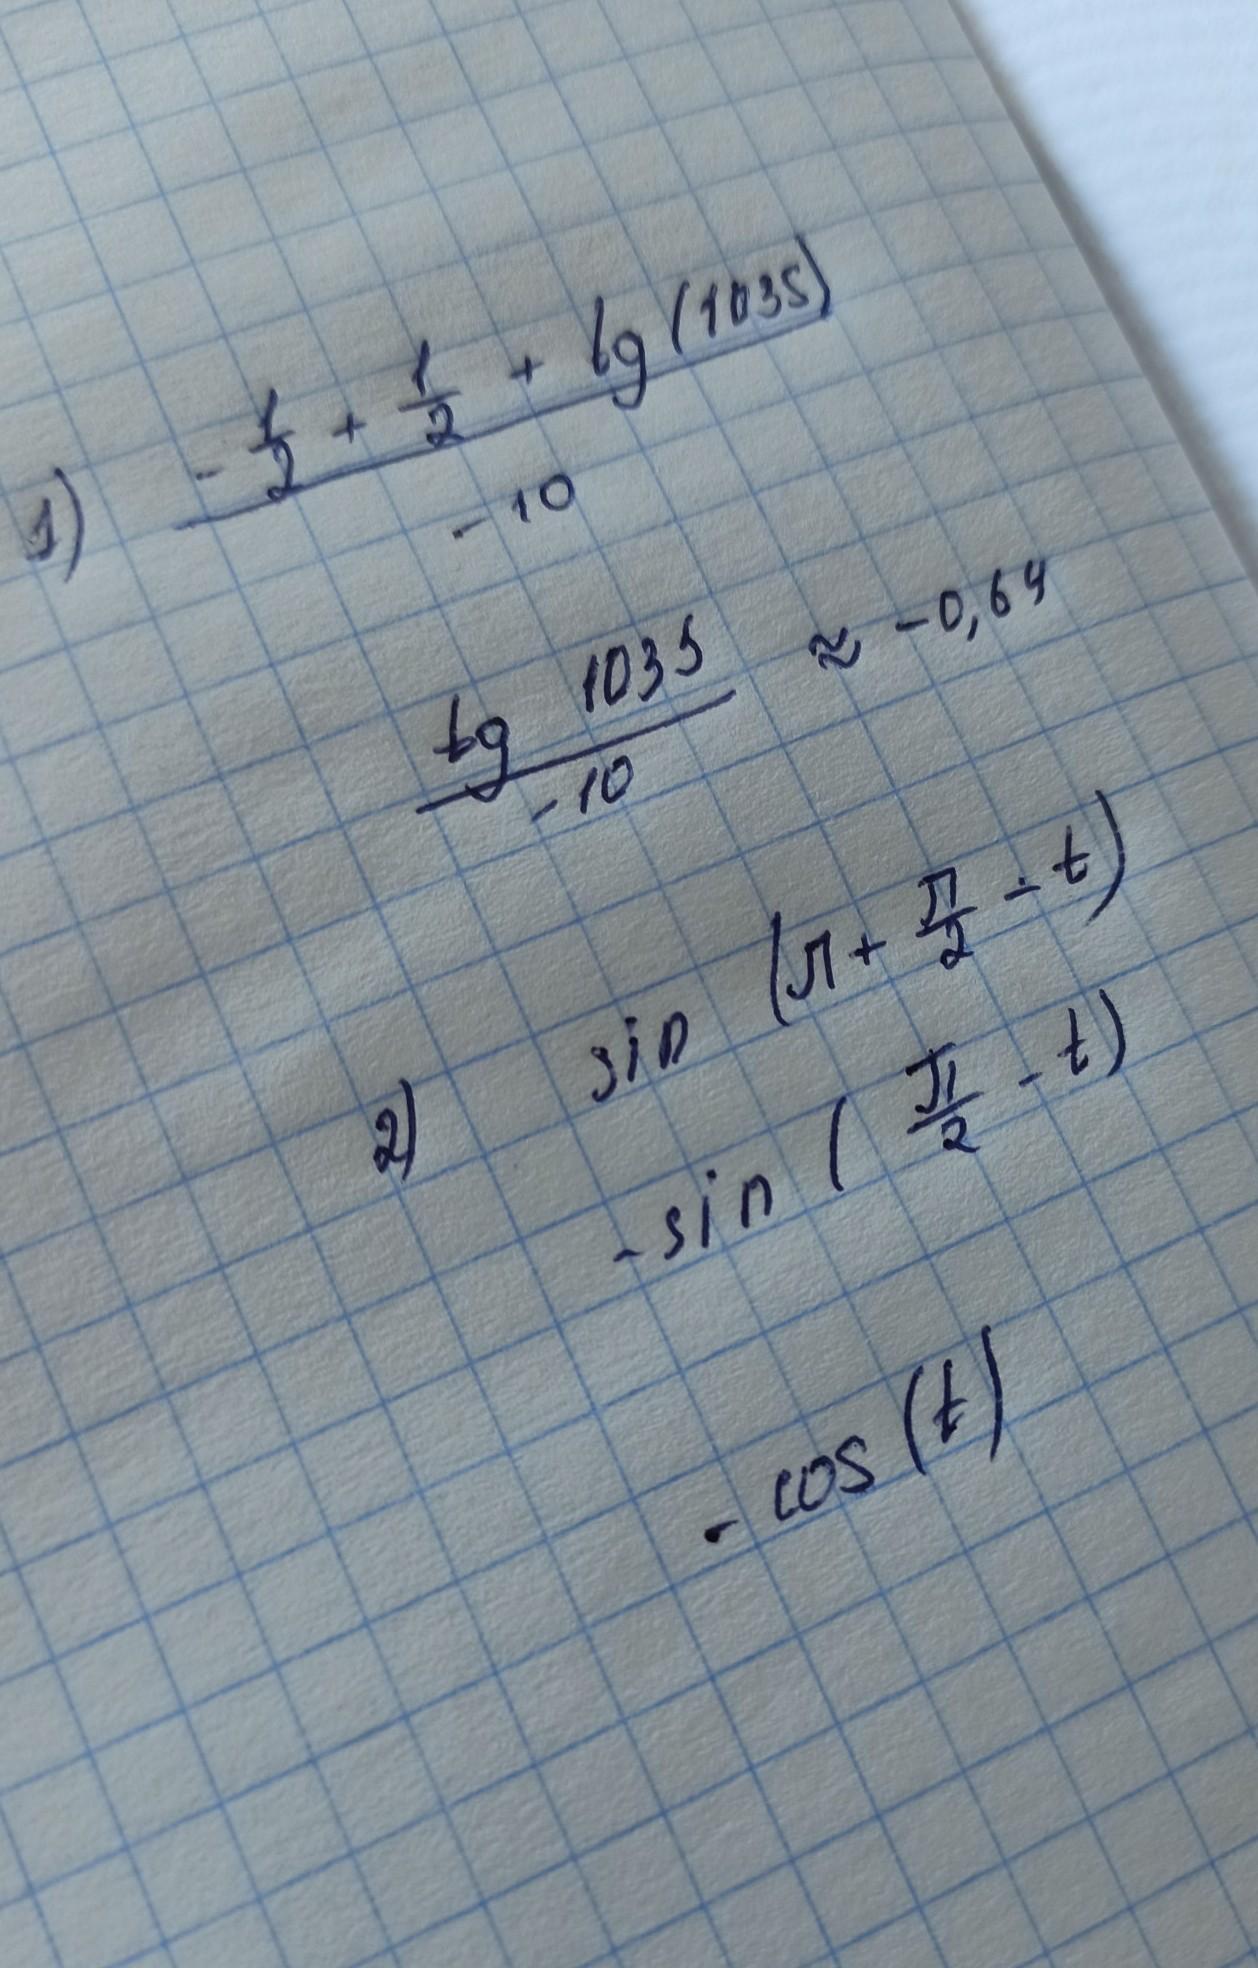 1) (-1/2 + 1/2 + tg(1035)) / -10
tg 1035 / -10 ≈ -0,64
2) sin (π + π/2 - t)
-sin (π/2 - t)
- cos (t)